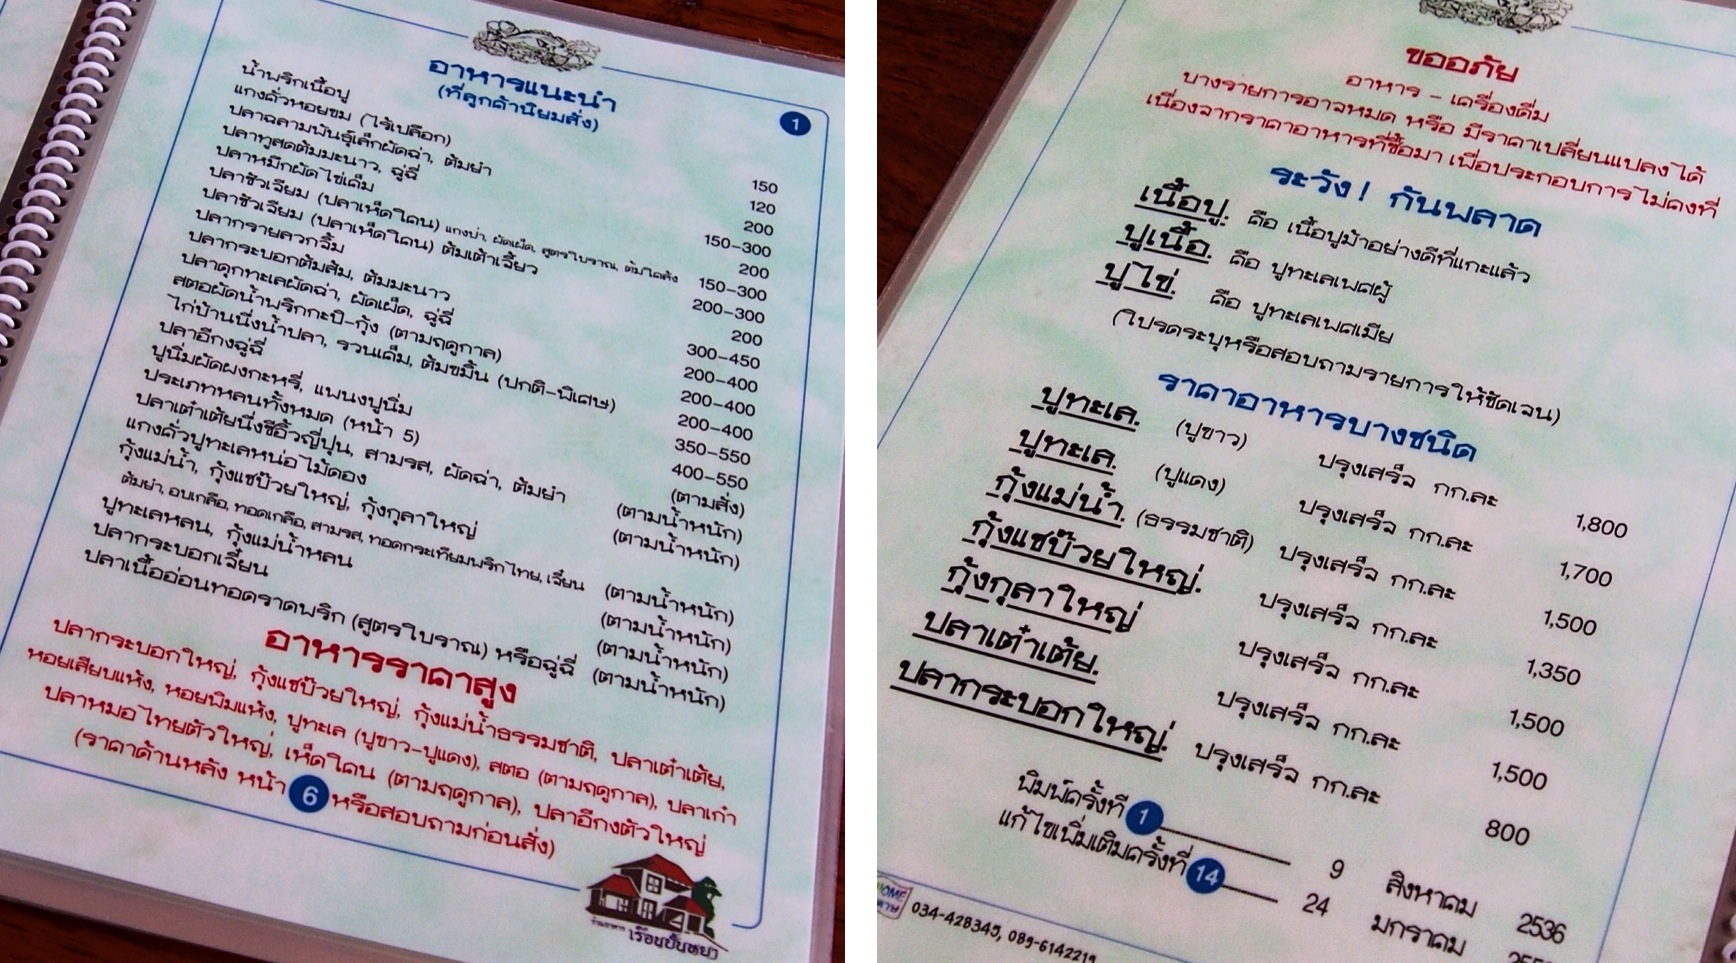 อาหารแนะนำ
(ที่ลูกค้านิยมสั่ง)
1
น้ำพริกเนื้อปู 150
แกงคั่วหอยขม (ไร้เปลือก) 120
ปลาฉลามพันธุ์เล็กผัดฉ่า, ต้มยำ 200
ปลาทูสดต้มมะนาว, ฉู่ฉี่ 150-300
ปลาหมึกผัดไข่เค็ม 200
ปลาซิวเจียม (ปลาเห็ดโคน) แกงป่า, ผัดเผ็ด, สูตรโบราณ, ต้มโคล้ง 150-300
ปลาซิวเจียม (ปลาเห็ดโคน) ต้มเต้าเจี้ยว 200-300
ปลากรายลวกจิ้ม 200
ปลากระบอกต้มส้ม, ต้มมะนาว 300-450
ปลาดุกทะเลผัดฉ่า, ผัดเผ็ด, ฉู่ฉี่ 200-400
สตอผัดน้ำพริกกะปิ-กุ้ง (ตามฤดูกาล) 200-400
ไก่บ้านนึ่งน้ำปลา, รวนเค็ม, ต้มขมิ้น (ปกติ-พิเศษ) 200-400
ปลาอีกงฉู่ฉี่ 350-550
ปูนิ่มผัดผงกะหรี่, แพนงปูนิ่ม 400-550
ประเภทหลนทั้งหมด (หน้า 5) (ตามสั่ง)
ปลาเต๋าเต้ยนึ่งซีอิ้วญี่ปุ่น, สามรส, ผัดฉ่า, ต้มยำ (ตามน้ำหนัก)
แกงคั่วปูทะเลหน่อไม้ดอง (ตามน้ำหนัก)
กุ้งแม่น้ำ, กุ้งแชบ๊วยใหญ่, กุ้งกุลาใหญ่
ต้มยำ, อบเกลือ, ทอดเกลือ, สามรส, ทอดกระเทียมพริกไทย, เจี๋ยน (ตามน้ำหนัก)
ปูทะเลหลน, กุ้งแม่น้ำหลน (ตามน้ำหนัก)
ปลากระบอกเจี๋ยน (ตามน้ำหนัก)
ปลาเนื้ออ่อนทอดราดพริก (สูตรโบราณ) หรือฉู่ฉี่ (ตามน้ำหนัก)
(ตามน้ำหนัก)
อาหารราคาสูง
ปลากระบอกใหญ่, กุ้งแชบ๊วยใหญ่, กุ้งแม่น้ำธรรมชาติ, ปลาเต๋าเต้ย,
หอยเสียบแห้ง, หอยพิมแห้ง, ปูทะเล (ปูขาว-ปูแดง), สตอ (ตามฤดูกาล), ปลาเก๋า
ปลาหมอไทยตัวใหญ่, เห็ดโคน (ตามฤดูกาล), ปลาอีกงตัวใหญ่
(ราคาด้านหลัง หน้า 6 หรือสอบถามก่อนสั่ง)
ร้านอาหาร เรือนปั้นหยา
ขออภัย
อาหาร - เครื่องดื่ม
บางรายการอาจหมด หรือ มีราคาเปลี่ยนแปลงได้
เนื่องจากราคาอาหารที่ซื้อมา เพื่อประกอบการไม่คงที่
ระวัง! กันพลาด
เนื้อปู. คือ เนื้อปูม้าอย่างดีที่แกะแล้ว
ปูเนื้อ. คือ ปูทะเลเพศผู้
ปูไข่. คือ ปูทะเลเพศเมีย
(โปรดระบุหรือสอบถามรายการให้ชัดเจน)
ราคาอาหารบางชนิด
ปูทะเล. (ปูขาว) ปรุงเสร็จ กก.ละ 1,800
ปูทะเล. (ปูแดง) ปรุงเสร็จ กก.ละ 1,700
กุ้งแม่น้ำ. (ธรรมชาติ) ปรุงเสร็จ กก.ละ 1,500
กุ้งแชบ๊วยใหญ่. ปรุงเสร็จ กก.ละ 1,350
กุ้งกุลาใหญ่ ปรุงเสร็จ กก.ละ 1,500
ปลาเต๋าเต้ย. ปรุงเสร็จ กก.ละ 1,500
ปลากระบอกใหญ่. ปรุงเสร็จ กก.ละ 800
พิมพ์ครั้งที่ 1 9 สิงหาคม 2536
แก้ไขเพิ่มเติมครั้งที่ 14 24 มกราคม
HOME
034-428345, 089-6142219